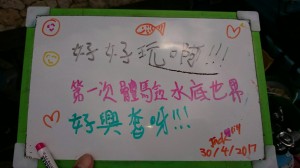 好好玩啊!!!
第一次體驗水底世界
好興奮呀!!!
30/4/2017